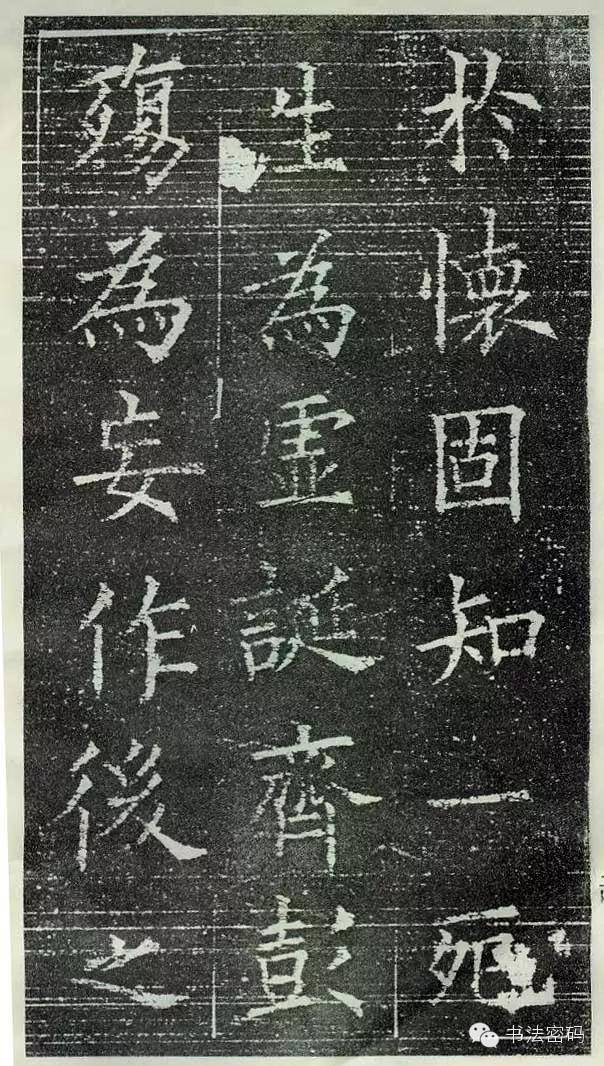 於懷固知一死
生為虛誕齊彭
殤為妄作後之
书法密码